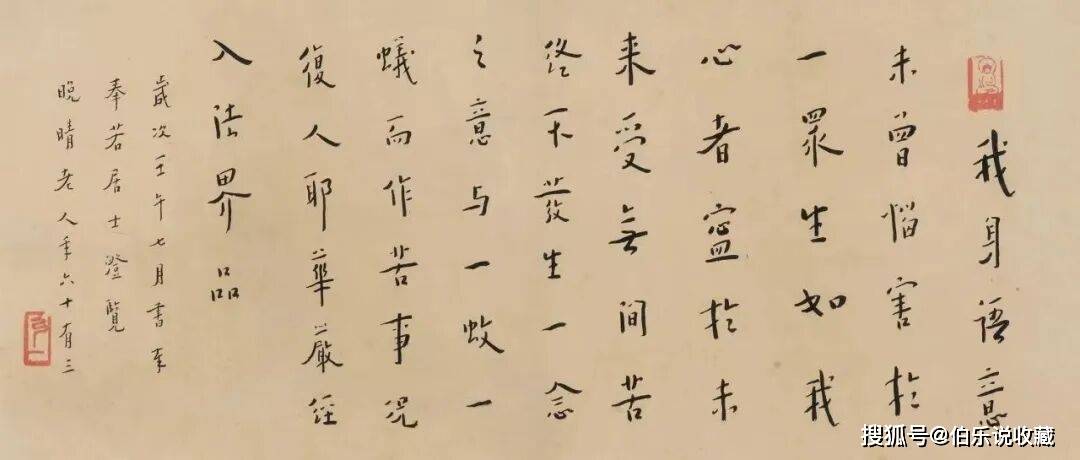 我身語意
未曾惱害於
一眾生如我
心者寧於未
来受無间苦
终不發生一念
之意与一蚊一
蟻而作苦事况
復人耶華嚴經
入法界品
歲次壬午七月書奉
奉若居士澄覽
晚晴老人年六十有三
搜狐号@伯乐说收藏